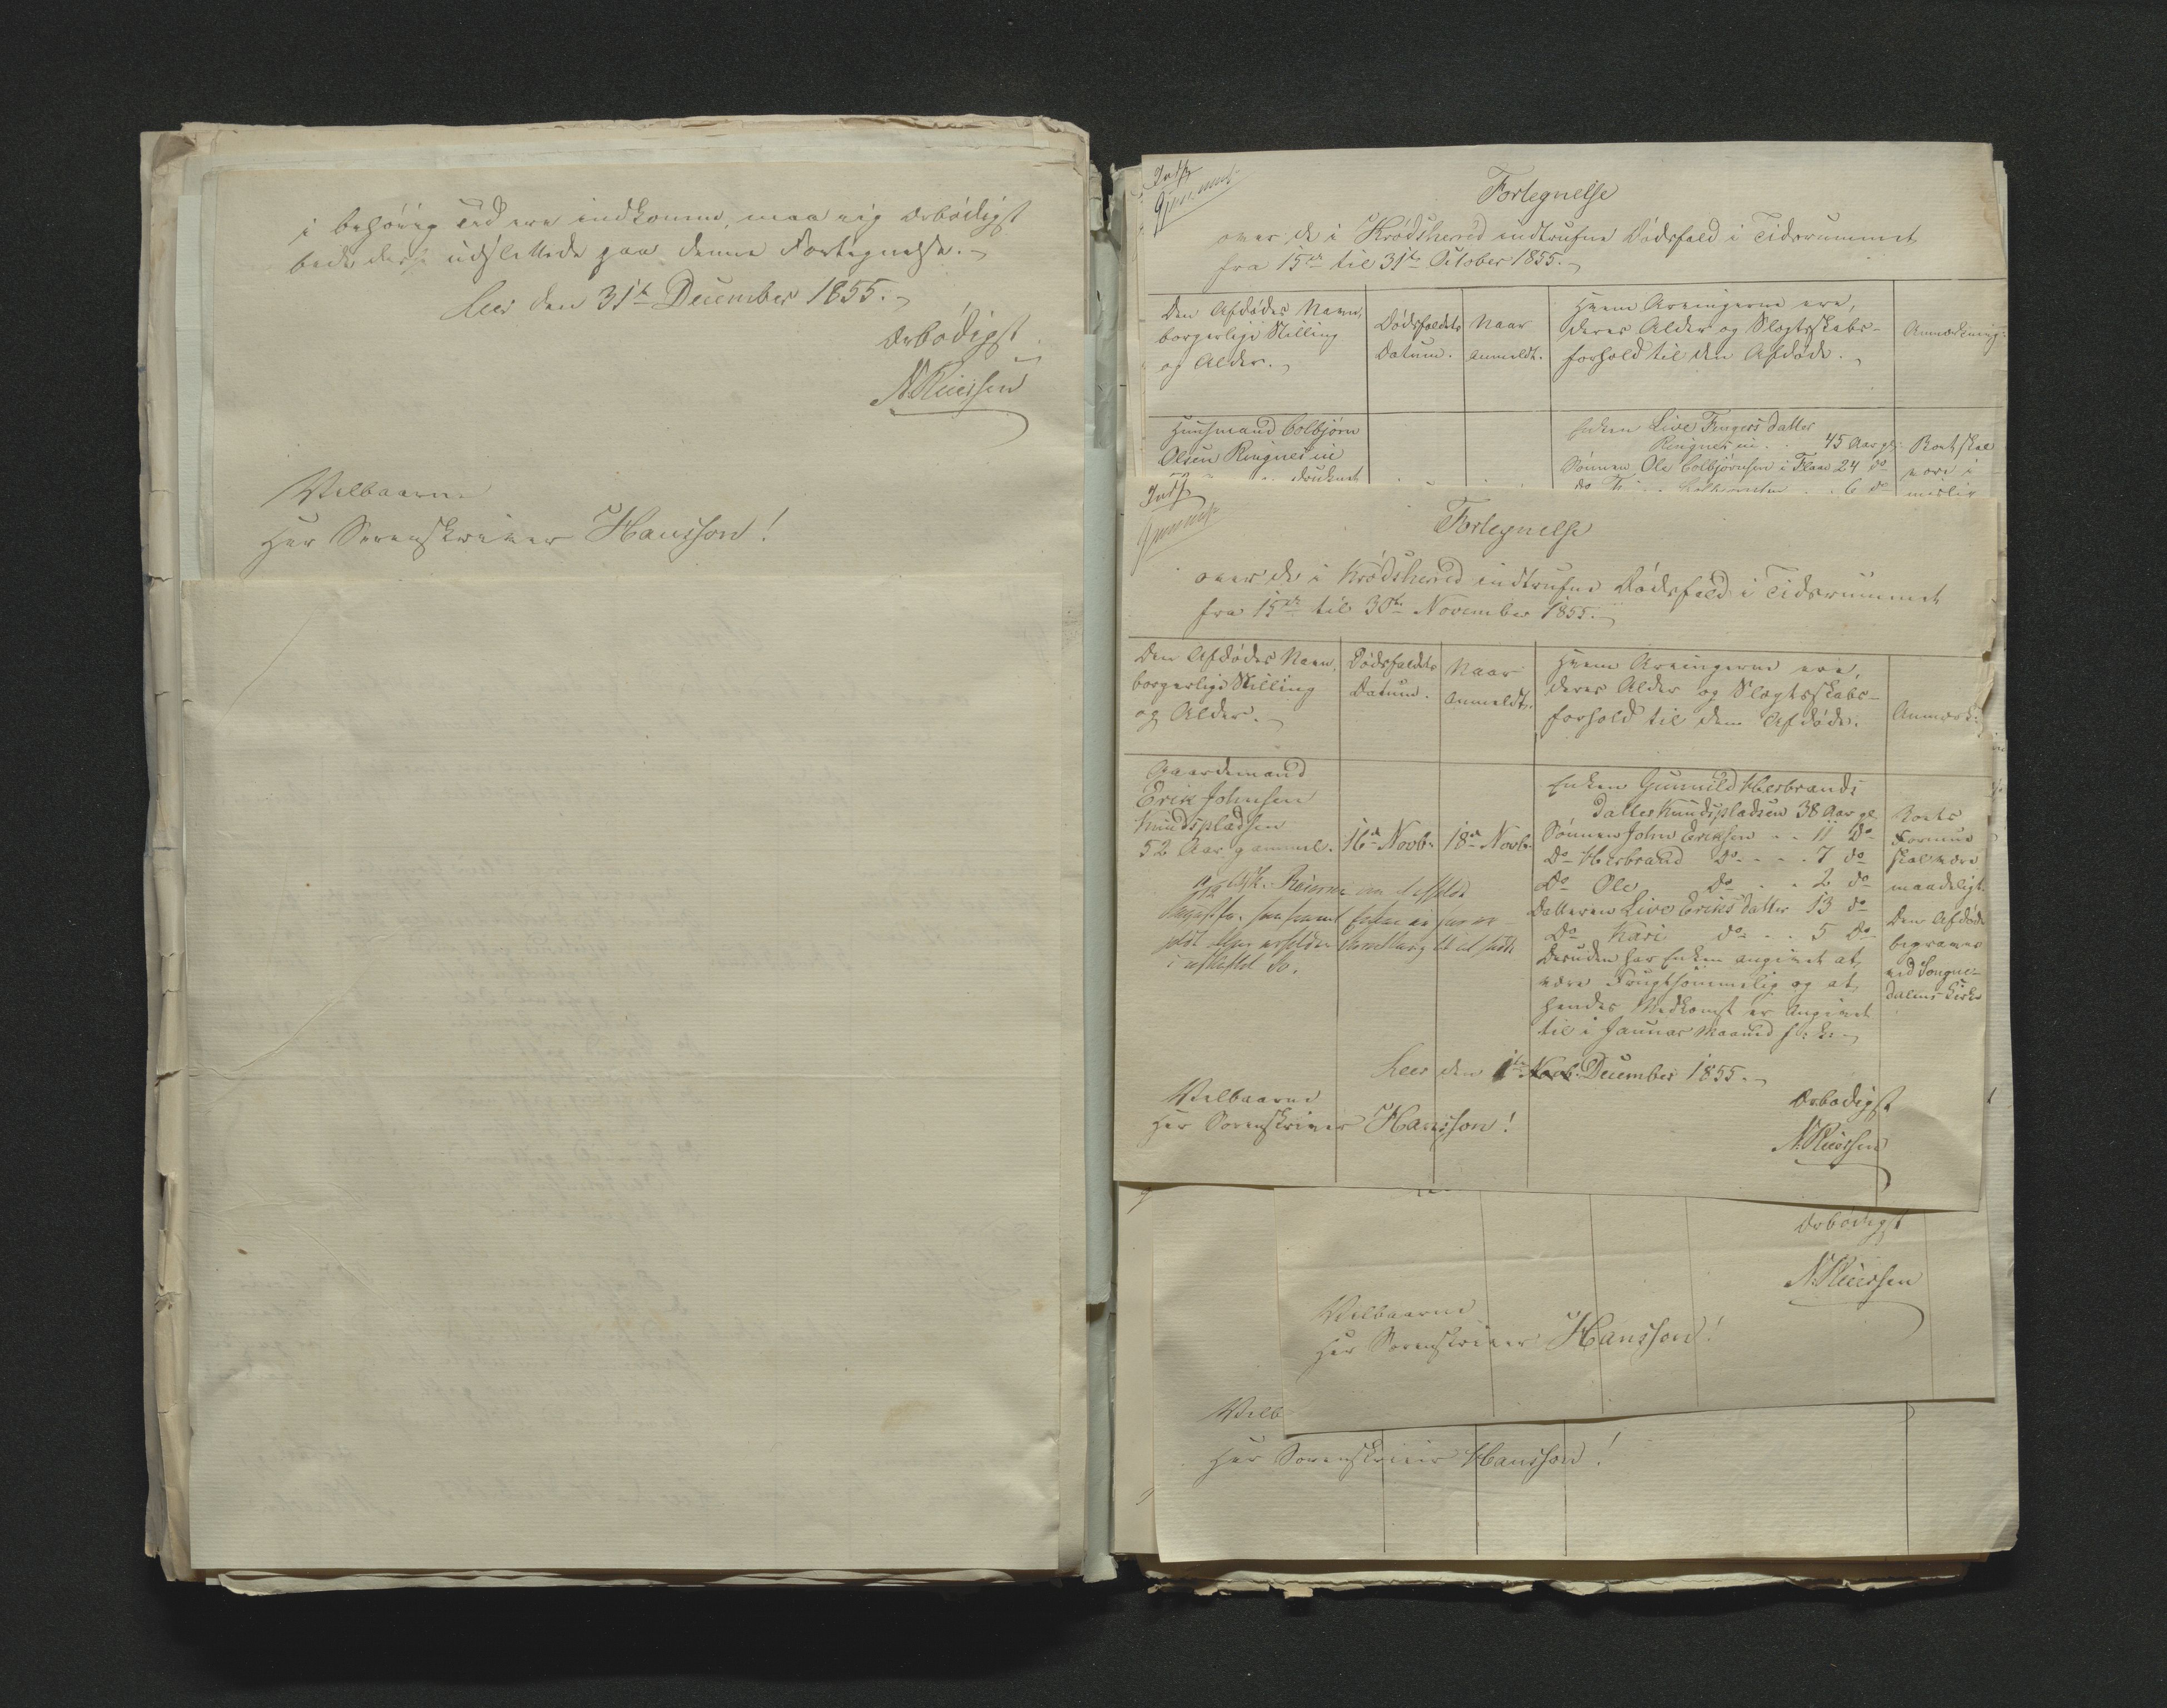 i behørig Tid ere indkomne, maa jeg ærbødigst
bede disse udslettede paa denne Fortegnelse.
Leer den 31te December 1855.
Ærbødigst
N. Reiersen
Velbaarne
Herr Sorenskriver Hansson!
Indf.
Fortegnelse
over de i Krødsherred indtrufne Dødsfald i Tidsrummet
fra 15de til 31te October 1855.
Den Afdødes Navn, borgerlige Stilling og Alder.
Dødsfaldets Datum.
Naar anmeldt.
Hvem Arvingerne ere, deres Alder og Slægtskabs-forhold til den Afdøde.
Anmærkning
Huusmand Colbjørn
Olsen Ringnesie
druknet
Enken Live Fingersdatter
Ringnesie 45 Aar gl.
Sønnen Ole Colbjørnsen i Flaae 24 do
do 6 do
Boet skal
være i
mislig
Indf.
Fortegnelse
over de i Krødsherred indtrufne Dødsfald i Tidsrummet
fra 15de til 30te November 1855.
Den Afdødes Navn, borgerlige Stilling og Alder.
Dødsfaldets Datum.
Naar anmeldt.
Hvem Arvingerne ere, deres Alder og Slægtskabs-forhold til den Afdøde.
Anmærk:
Gaardmand
Erik Johnsen
Knudspladsen
52 Aar gammel.
16de Novb.
18de Novb.
Enken Gunnild Herbrands
datter Knudspladsen 38 Aar gl.
Sønnen John Eriksen 11 do
do Herbrand do 7 do
do Ole do 2 do
Datteren Live Eriksdatter 13 do
do Kari do 5 do
Desuden har Enken angivet at
være Frugtsommelig og at
hendes Nedkomst er Angivet
til i Januar Maaned f: k:
Boets
Formue
skal være
maadeligt.
Den Afdøde
begraves
ved Sogne-
dalens Kirke
Leer den 1te Novb. December 1855.
Velbaarne
Herr Sorenskriver Hansson!
Ærbødigst
N. Reiersen
Ærbødigst
N. Reiersen
Velbaarne
Herr Sorenskriver Hansson!
Velb
Herr Sorenskriver Hansson!